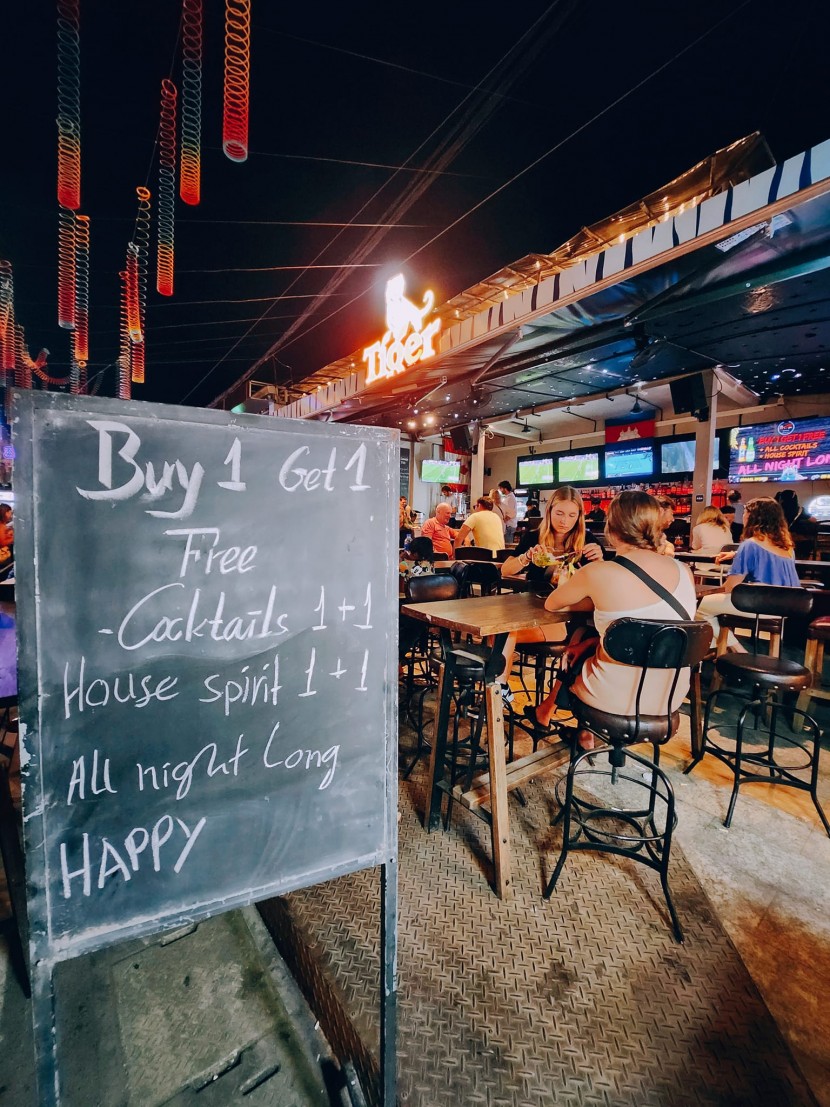 Buy 1 Get 1
Free
-Cocktails 1+1
House spirit 1+1
All night Long
HAPPY
Tiger
BUY 1 GET 1 FREE
+ ALL COCKTAILS
+ HOUSE SPIRIT
ALL NIGHT LON